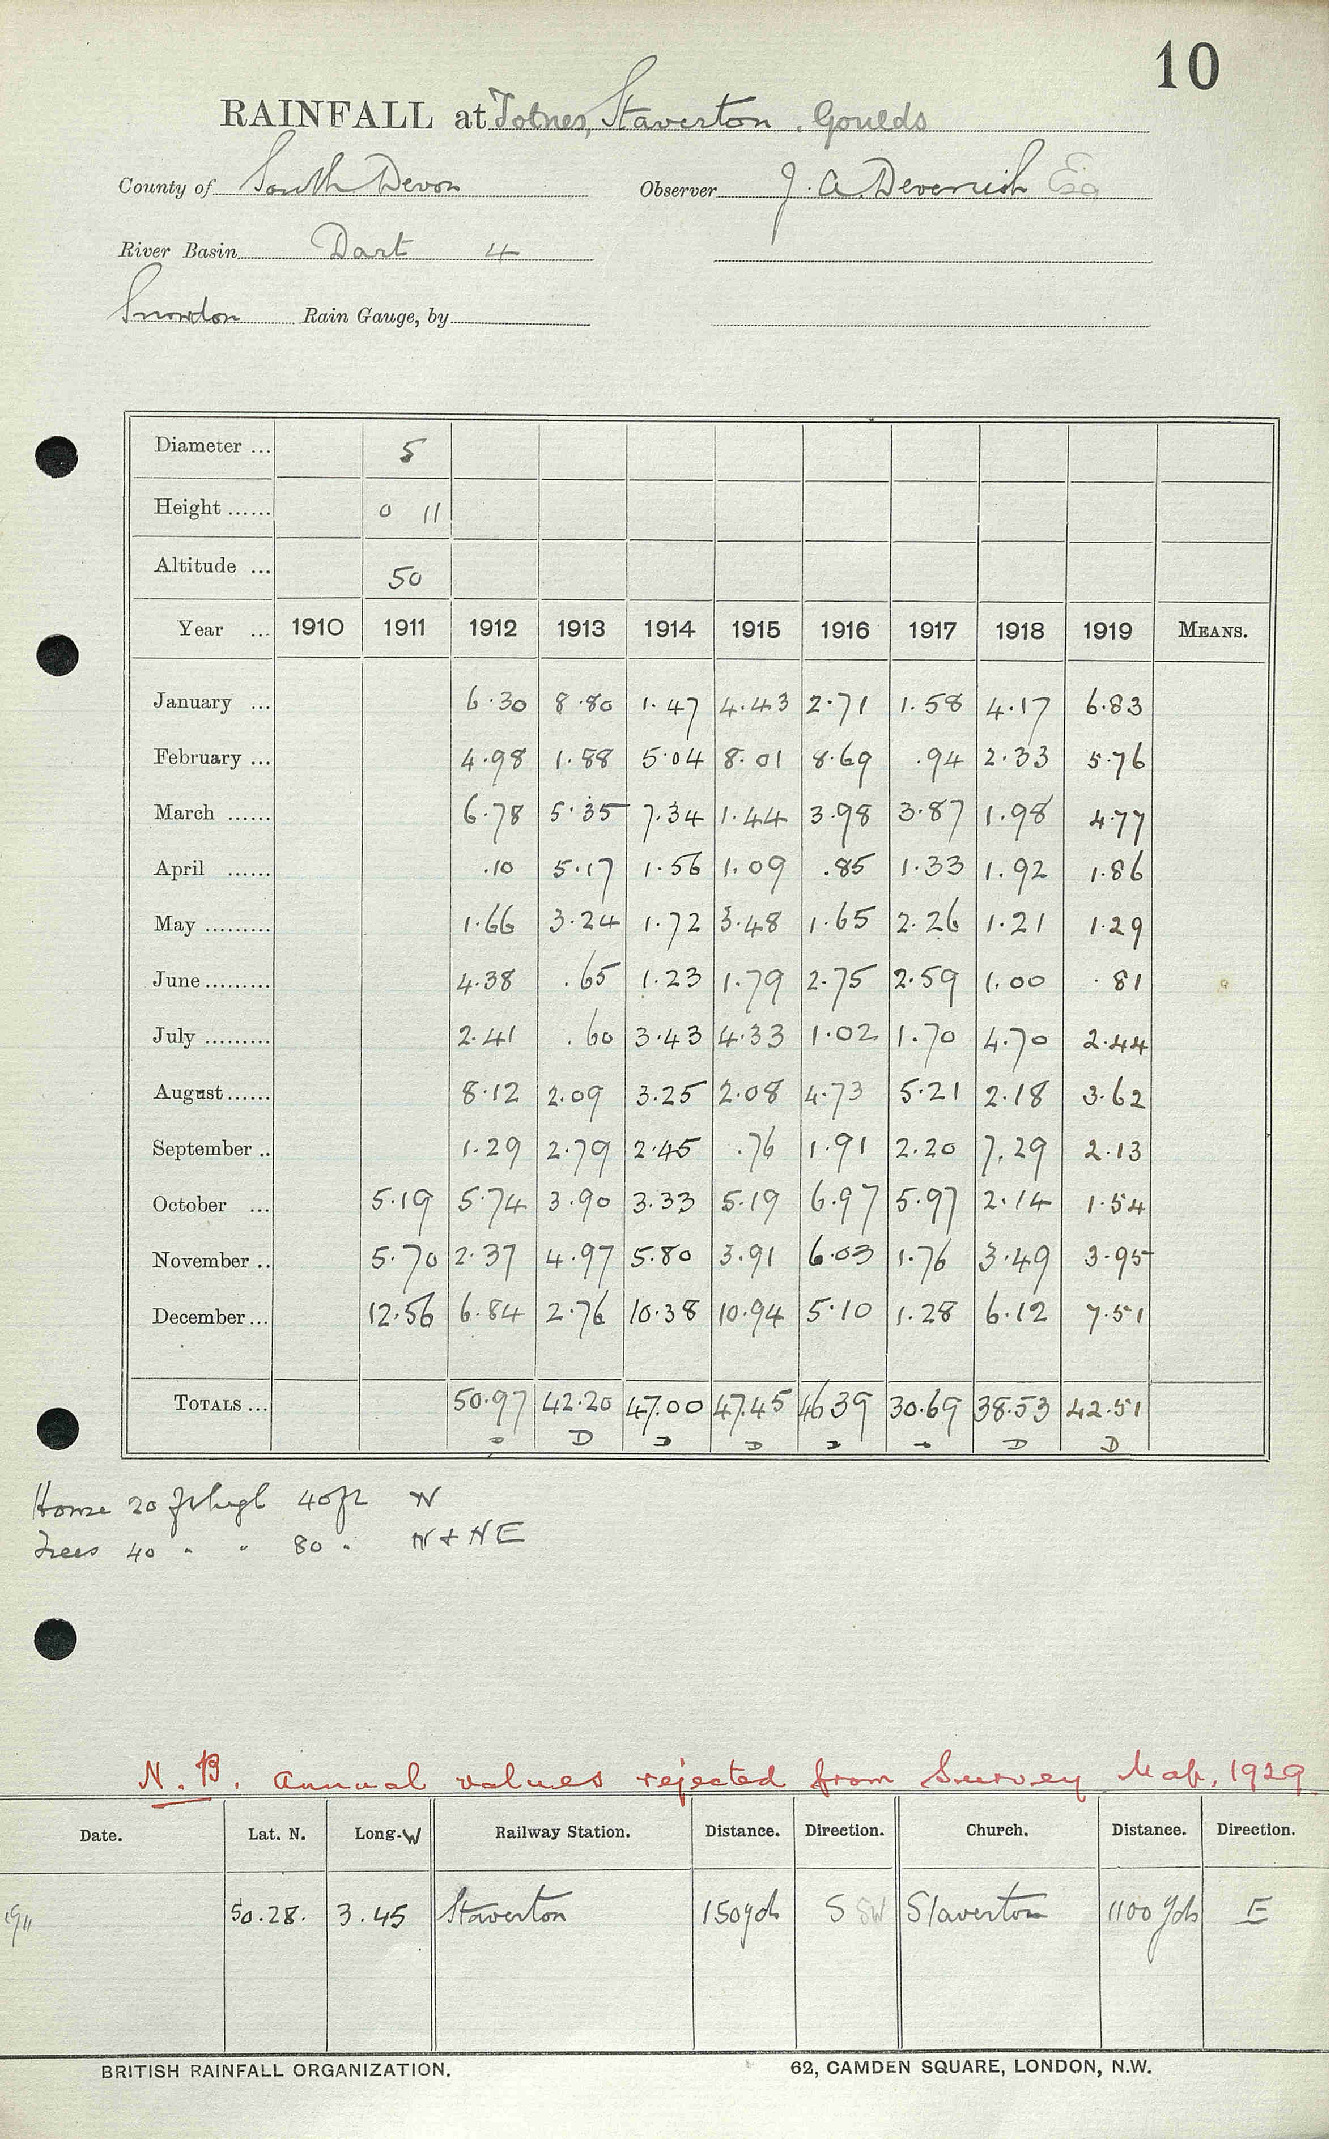 10
RAINFALL at Totnes, Staverton. Goulds
County of South Devon Observer J. A. Devenish Esq
River Basin Dart 4
Snowdon Rain Gauge, by
Diameter ... 5
Height ...... 0 11
Altitude ... 50
Year ... 1910 1911 1912 1913 1914 1915 1916 1917 1918 1919 MEANS.
January ... 6.30 8.80 1.47 4.43 2.71 1.58 4.17 6.83
February ... 4.98 1.88 5.04 8.01 8.69 .94 2.33 5.76
March ...... 6.78 5.35 7.34 1.44 3.98 3.87 1.98 4.77
April ...... .10 5.17 1.56 1.09 .85 1.33 1.92 1.86
May ......... 1.66 3.24 1.72 3.48 1.65 2.26 1.21 1.29
June ......... 4.38 .65 1.23 1.79 2.75 2.59 1.00 .81
July ......... 2.41 .60 3.43 4.33 1.02 1.70 4.70 2.44
August ...... 8.12 2.09 3.25 2.08 4.73 5.21 2.18 3.62
September .. 1.29 2.79 2.45 .76 1.91 2.20 7.29 2.13
October ... 5.19 5.74 3.90 3.33 5.19 6.97 5.97 2.14 1.54
November .. 5.70 2.37 4.97 5.80 3.91 6.03 1.76 3.49 3.95
December ... 12.56 6.84 2.76 10.38 10.94 5.10 1.28 6.12 7.51
TOTALS ... 50.97 42.20 47.00 47.45 46.39 30.69 38.53 42.51
D D D D D D D D
House 20 ft high 40 ft N
Trees 40 " " 80 " N + NE
N.B. Annual values rejected from Survey Map, 1929
Date. Lat. N. Long. W Railway Station. Distance. Direction. Church. Distance. Direction.
1911 50.28. 3.45 Staverton 150 yds S SW Staverton 1100 yds E
BRITISH RAINFALL ORGANIZATION. 62, CAMDEN SQUARE, LONDON, N.W.